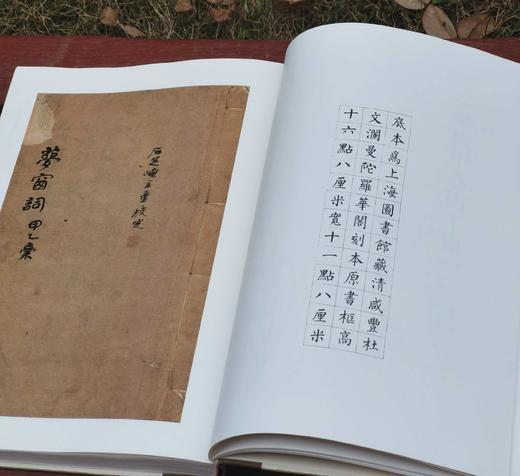 底本爲上海圖書館藏清咸豐杜
文瀾曼陀羅華閣刻本原書框高
十六點八厘米寬十一點八厘米
石芝崦主重校定
夢窗詞甲乙稾